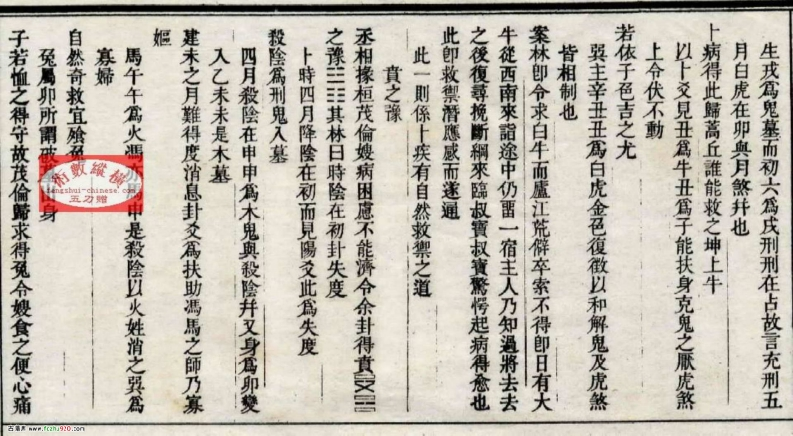 生戌爲鬼墓而初六爲戌刑刑在占故言充刑五
月白虎在卯與月煞幷也
卜病得此歸蒿丘誰能救之坤上牛
以卜爻見丑爲牛丑爲子能扶身克鬼之厭虎煞
上令伏不動
若依子色吉之尤
巽主辛丑丑爲白虎金色復徵以和解鬼及虎煞
皆相制也
案林卽令求白牛而廬江荒僻卒索不得卽日有大
牛從西南來詣途中仍畱一宿主人乃知過將去去
之後復尋挽斷綱來臨叔寶叔寶驚愕起病得愈也
此卽救禦潛應感而遂通
此一則係卜疾有自然救禦之道
賁之豫
丞相掾桓茂倫嫂病困慮不能濟令余卦得賁
之豫其林曰時陰在初卦失度
卜時四月降陰在初而見陽爻此爲失度
殺陰爲刑鬼入墓
四月殺陰在申申爲木鬼與殺陰幷又身爲卯變
入乙未未是木墓
建未之月難得度消息卦爻爲扶助馮馬之師乃寡
嫗
馬午午爲火馮 申是殺陰以火姓消之巽爲
寡婦
自然奇救宜飱兔
兔屬卯所謂破 出身
子若恤之得守故茂倫歸求得兔令嫂食之便心痛
術數縱橫
fengshui-chinese.com
五刀贈
www.fczhu920.com